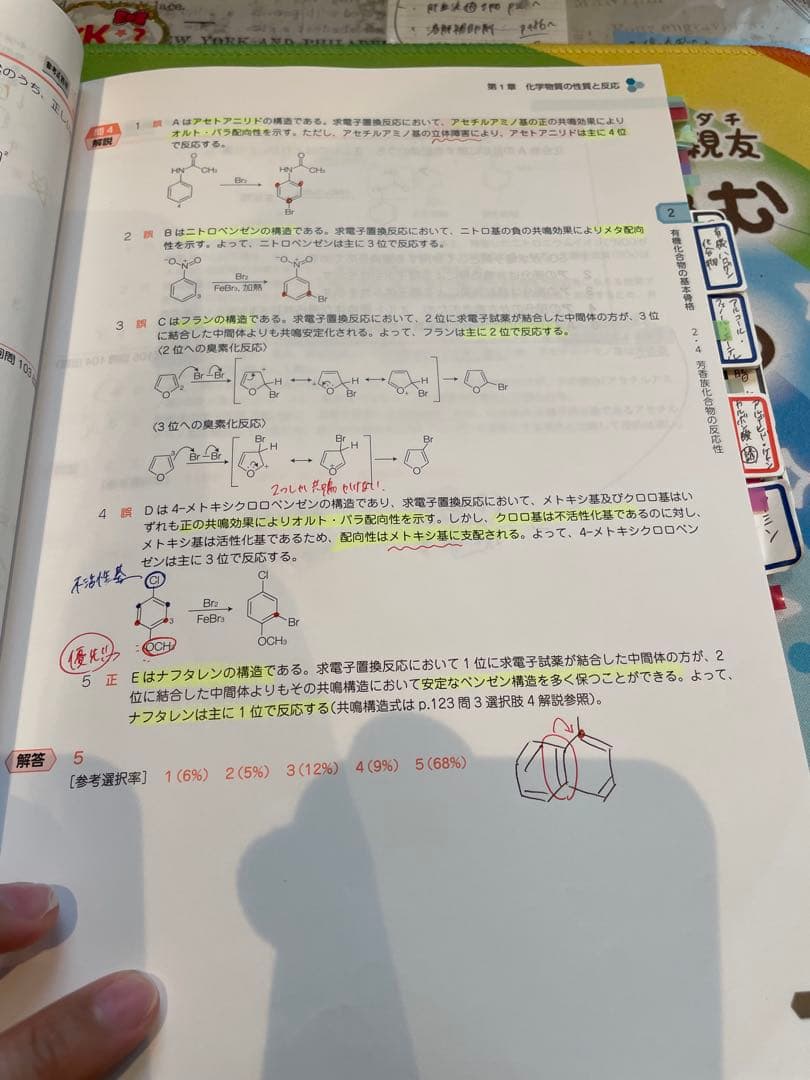 第1章 化学物質の性質と反応
問4
解説
1 誤 Aはアセトアニリドの構造である。求電子置換反応において、アセチルアミノ基の正の共鳴効果により
オルト・パラ配向性を示す。ただし、アセチルアミノ基の立体障害により、アセトアニリドは主に4位
で反応する。
HN O CH₃ 4 Br₂ HN O CH₃ Br
2 誤 Bはニトロベンゼンの構造である。求電子置換反応において、ニトロ基の負の共鳴効果によりメタ配向
性を示す。よって、ニトロベンゼンは主に3位で反応する。
⁻O N⁺ O 3 Br₂ FeBr₃, 加熱 ⁻O N⁺ O Br
3 誤 Cはフランの構造である。求電子置換反応において、2位に求電子試薬が結合した中間体の方が、3位
に結合した中間体よりも共鳴安定化される。よって、フランは主に2位で反応する。
〈2位への臭素化反応〉
O 2 Br–Br O H Br O H Br O H Br O Br
〈3位への臭素化反応〉
O 3 Br–Br Br H O Br H O Br O
2つしか共鳴かけない
4 誤 Dは4-メトキシクロロベンゼンの構造であり、求電子置換反応において、メトキシ基及びクロロ基はい
ずれも正の共鳴効果によりオルト・パラ配向性を示す。しかし、クロロ基は不活性化基であるのに対し、
メトキシ基は活性化基であるため、配向性はメトキシ基に支配される。よって、4-メトキシクロロベン
ゼンは主に3位で反応する。
不活性基
Cl 3 OCH₃ Br₂ FeBr₃ Cl Br OCH₃
優先!!
5 正 Eはナフタレンの構造である。求電子置換反応において1位に求電子試薬が結合した中間体の方が、2
位に結合した中間体よりもその共鳴構造において安定なベンゼン構造を多く保つことができる。よって、
ナフタレンは主に1位で反応する(共鳴構造式は p.123 問3選択肢4解説参照)。
解答 5
[参考選択率] 1(6%) 2(5%) 3(12%) 4(9%) 5(68%)
2
有機化合物の基本骨格
2・4 芳香族化合物の反応性
ダチ
親友
む